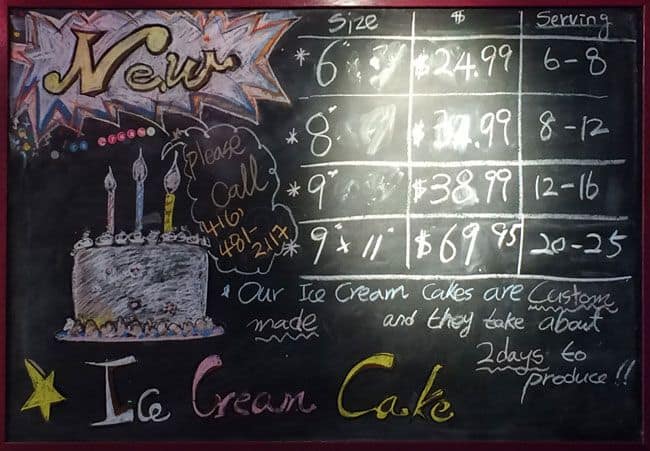 New
Size $ Serving
* 6" $24.99 6-8
* 8" .99 8-12
* 9" $38.99 12-16
* 9" x 11" $69.95 20-25
Please
Call
(416)
481-
2117
* Our Ice Cream Cakes are Custom
made and they take about
2days to
produce!!
Ice Cream Cake